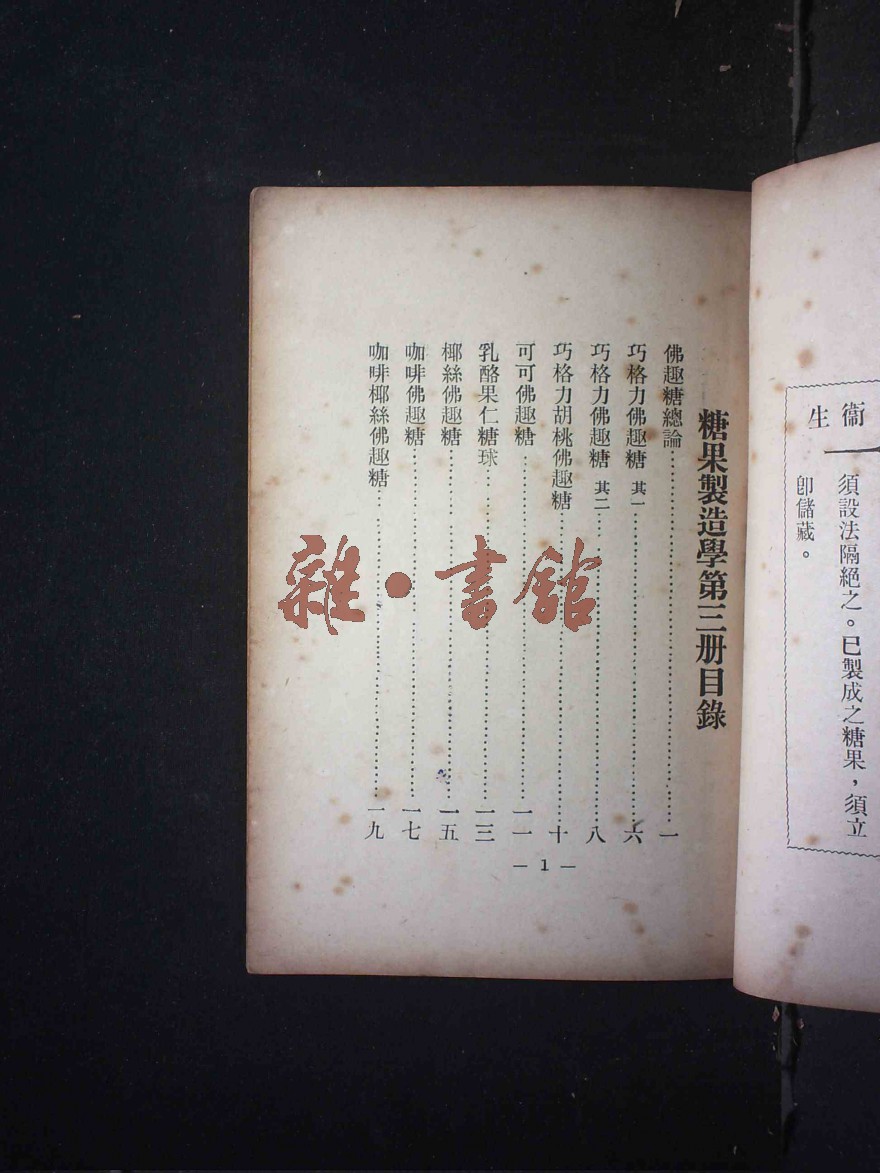 衞生
須設法隔絕之。已製成之糖果，須立
卽儲藏。
糖果製造學第三册目錄
佛趣糖總論……一
巧格力佛趣糖 其一……六
巧格力佛趣糖 其二……八
巧格力胡桃佛趣糖……十
可可佛趣糖……一一
乳酪果仁糖球……一三
椰絲佛趣糖……一五
咖啡佛趣糖……一七
咖啡椰絲佛趣糖……一九
— 1 —
雜·書館